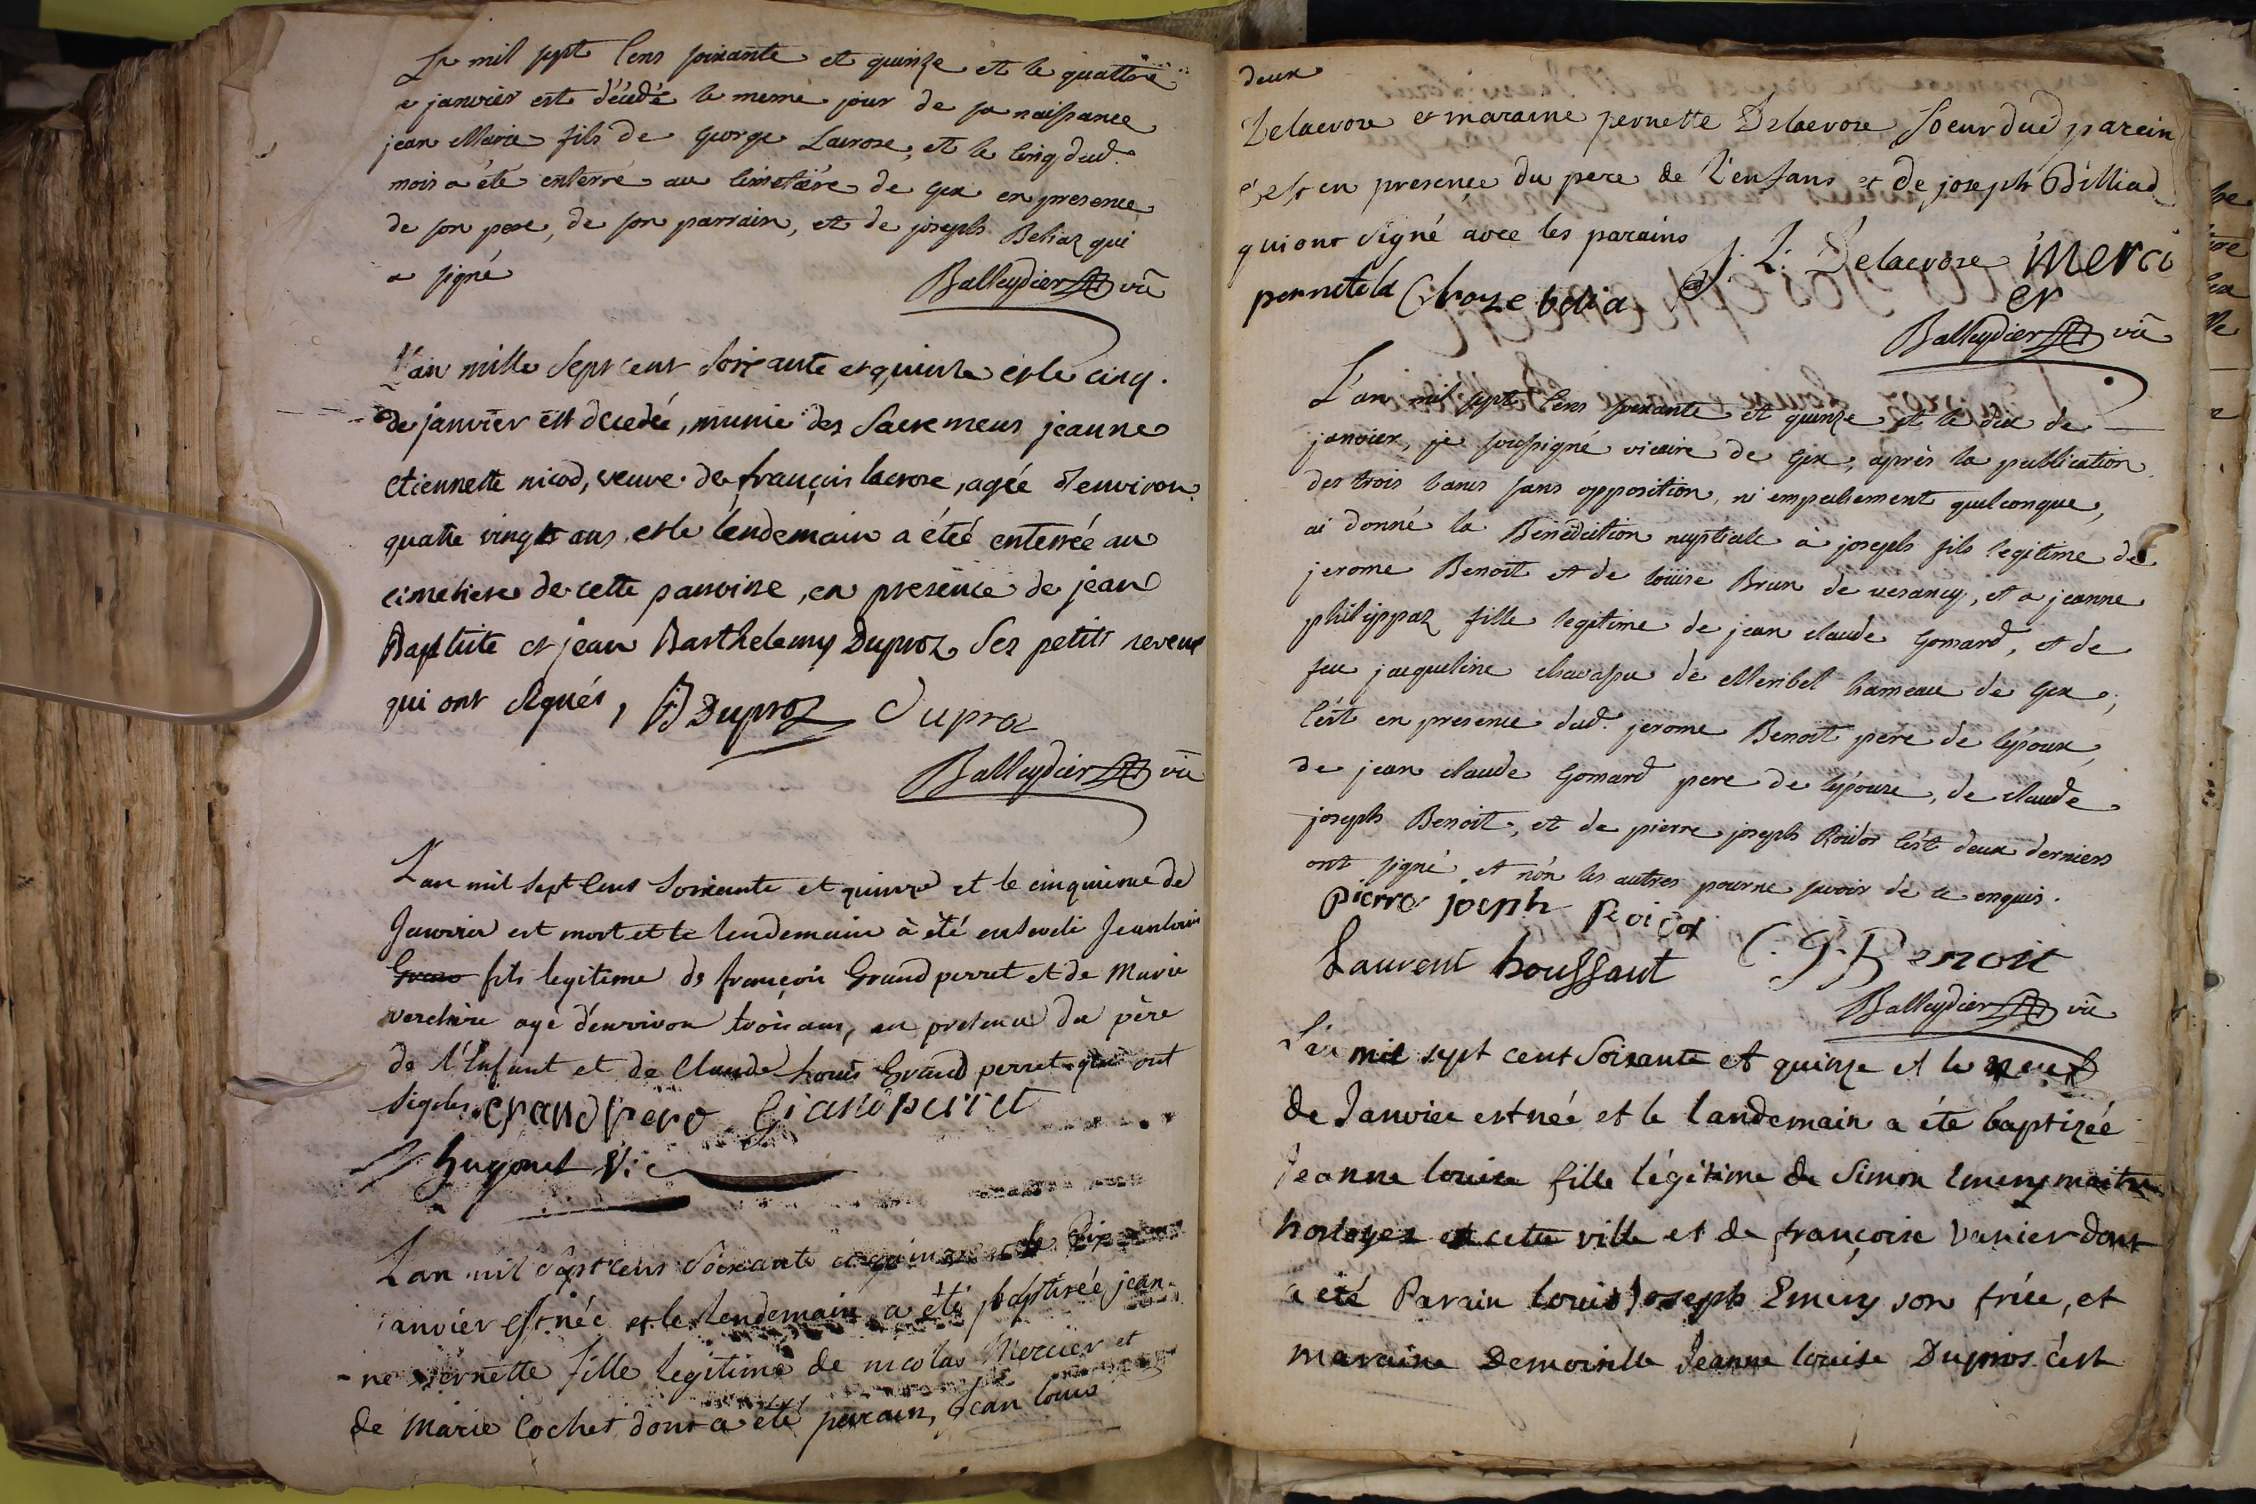 L mil sept Cens soixante et quinze et le quattre
e janvier est décedé le meme jour de sa naissance
jean Marie fils de George Lacroze, et le cinq dud.
mois a été enterré au cimetiére de Gex en presence
de son pere, de son parrain, et de joseph Beliaz qui
a signé Balleydier vic
L'an mille sept cent soixante et quinze et le cinq.
de janvier est decedée, munie des Sacremens jeanne
etiennette nicod, veuve de françois lacroze, agée d'environ
quatre vingt ans et le lendemain a étée enterrée au
cimetiere de cette parroisse, en presence de jean
Baptiste et jean Barthelemy Duproz ses petits neveux
qui ont signés, B Duproz Duproz
Balleydier vic
L'an mil sept Cens soixante et quinze et le cinquieme de
Janvier est mort et le lendemain à été enseveli Jean louis
fils legitime de françois Grandperret et de Marie
verchére agé d'environ trois ans, en presence du père
de l'Enfant et de Claude Louis Grand perret qui ont
signés. Grandpero Grandperret
hugonet Vic
L'an mil sept cens soixante et quinze et le Six
janvier est née et le lendemain a été baptisée jean-
ne pernette fille legitime de nicolas Mercier et
de Marie Cochet dont a été parain, Jean louis
deux
Delacroze et maraine pernette Delacroze soeur dud parein
c'est en presence du pere de l'enfans et de joseph Billiad
qui ont signé avec les parains J. L. Delacroze Merci
er
pernete la Croze belia
Balleydier vic
L'an mil sept Cens soixante et quinze et le dix de
janvier, je soussigné vicaire de Gex, après la publication
des trois bancs sans opposition, ni empechement quelconque,
ai donné la Bénédiction nuptiale à joseph fils legitime de
jerome Benoit et de louise Brun de vesancy, et a jeanne
philippaz fille legitime de jean claude Gomard, et de
feu jacqueline chavassu de Meribel hameau de Gex,
C'est en presence dud. jerome Benoit pere de l'epoux,
de jean claude Gomard pere de l'epouse, de claude
joseph Benoit, et de pierre joseph Roidor C'est deux derniers
ont signé et non les autres pour ne savoir de ce enquis.
pierre joseph Roidor
Laurent houssaut C. J. Benoit
Balleydier vic
L'an mil sept cent Soixante et quinze et le neuf
de Janvier est née et le landemain a été baptizéé
Jeanne louise fille légitime de Simon Emery maitre
horloger cette ville et de françoise Vanier dont
a été Parain louis Joseph Emery son frére, et
maraine Demoiselle Jeanne louise Duproz c'est